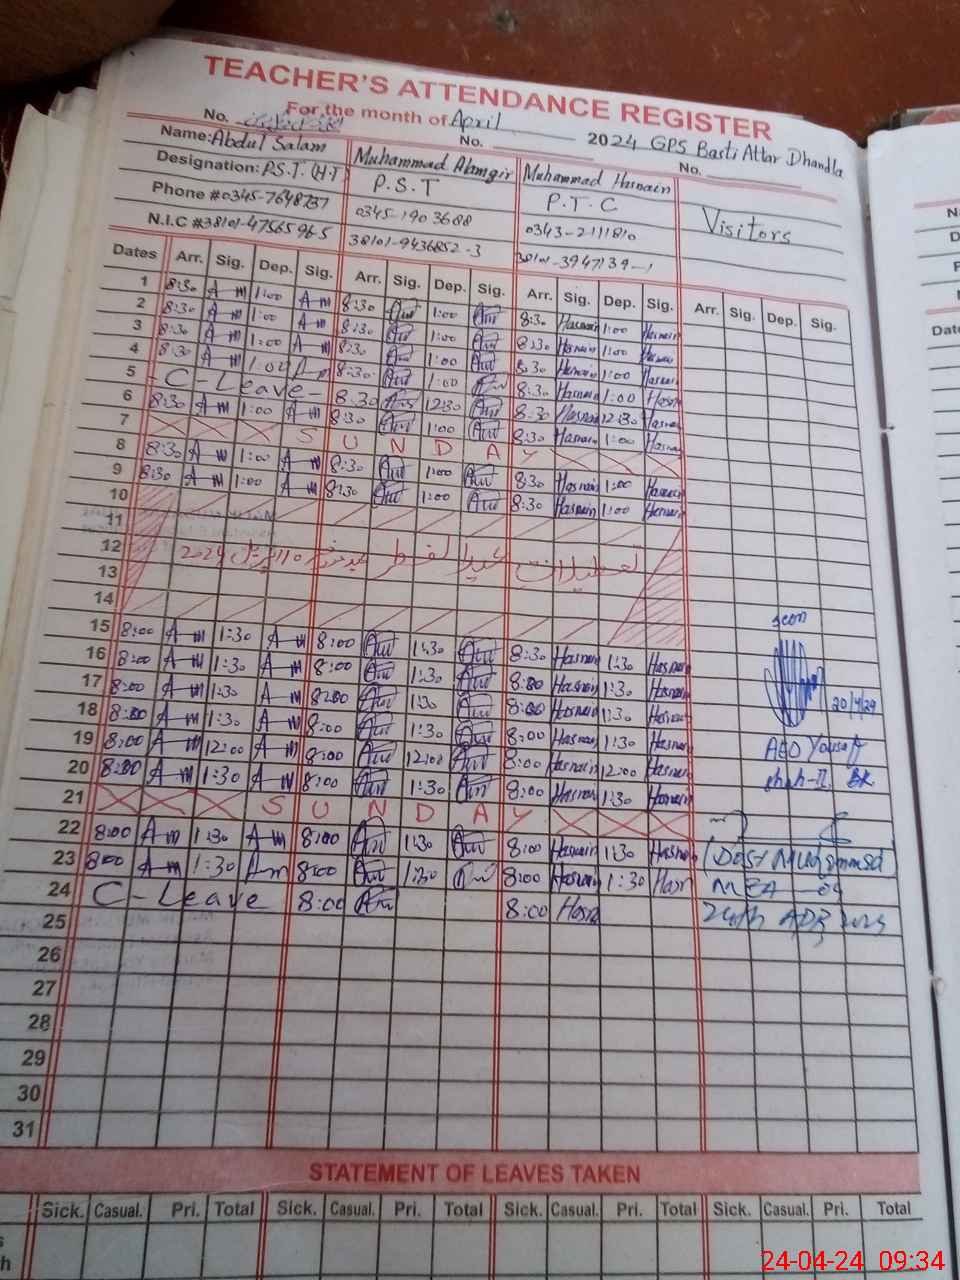 TEACHER'S ATTENDANCE REGISTER
For the month of April 2024 GPS Basti Attar Dhandla
No. No. No.
Name: Abdul Salam Muhammad Alamgir Muhammad Hasnain Visitors
Designation: P.S.T. (H.T) P.S.T P.T.C
Phone #0345-7648737 0345-190 3688 0343-2111810
N.I.C #38101-4756596-5 38101-9436852-3 38101-3947139-1
Dates Arr. Sig. Dep. Sig. Arr. Sig. Dep. Sig. Arr. Sig. Dep. Sig. Arr. Sig. Dep. Sig.
1 8:30 A-m 1:00 A-m 8:30 1:00 8:30 Hasnain 1:00 Hasnain
2 8:30 A-m 1:00 A-m 8:30 1:00 8:30 Hasnain 1:00 Hasnain
3 8:30 A-m 1:00 A-m 8:30 1:00 8:30 Hasnain 1:00 Hasnain
4 8:30 A-m 1:00 8:30 1:00 8:30 Hasnain 1:00 Hasn
5 - C - Leave - 8:30 12:30 8:30 Hasnain 12:30 Hasnai
6 8:30 A-m 1:00 A-m 8:30 1:00 8:30 Hasnain 1:00 Hasnai
7 S U N D A Y
8 8:30 A-m 1:00 A-m 8:30 1:00 8:30 Hasnain 1:00 Hasnain
9 8:30 A-m 1:00 A-m 8:30 1:00 8:30 Hasnain 1:00 Hasnain
10
11
12 تعطیلات عید الفطر اپریل 2024
13
14
15 8:00 A-m 1:30 A-m 8:00 1:30 8:30 Hasnain 1:30 Hasnain
16 8:00 A-m 1:30 A-m 8:00 1:30 8:00 Hasnain 1:30 Hasnain
17 8:00 A-m 1:30 A-m 8:00 1:30 8:00 Hasnain 1:30 Hasnain
18 8:00 A-m 1:30 A-m 8:00 1:30 8:00 Hasnain 1:30 Hasnain
19 8:00 A-m 12:00 A-m 8:00 12:00 8:00 Hasnain 12:00 Hasnain
20 8:00 A-m 1:30 A-m 8:00 1:30 8:00 Hasnai 1:30 Hasnain
21 S U N D A Y
22 8:00 A-m 1:30 A-m 8:00 1:30 8:00 Hasnain 1:30 Hasnain
23 8:00 A-m 1:30 Am 8:00 1:30 8:00 Hasnain 1:30 Hasn
24 C - Leave 8:00 8:00 Hasn
25
26
27
28
29
30
31
seen
20/4/24
AEO Yousaf
shah-II BK
(Dost Muhammad)
MEA - 09
24th APR 2024
STATEMENT OF LEAVES TAKEN
Sick. Casual. Pri. Total Sick. Casual. Pri. Total Sick. Casual. Pri. Total Sick. Casual. Pri. Total
24-04-24 09:34